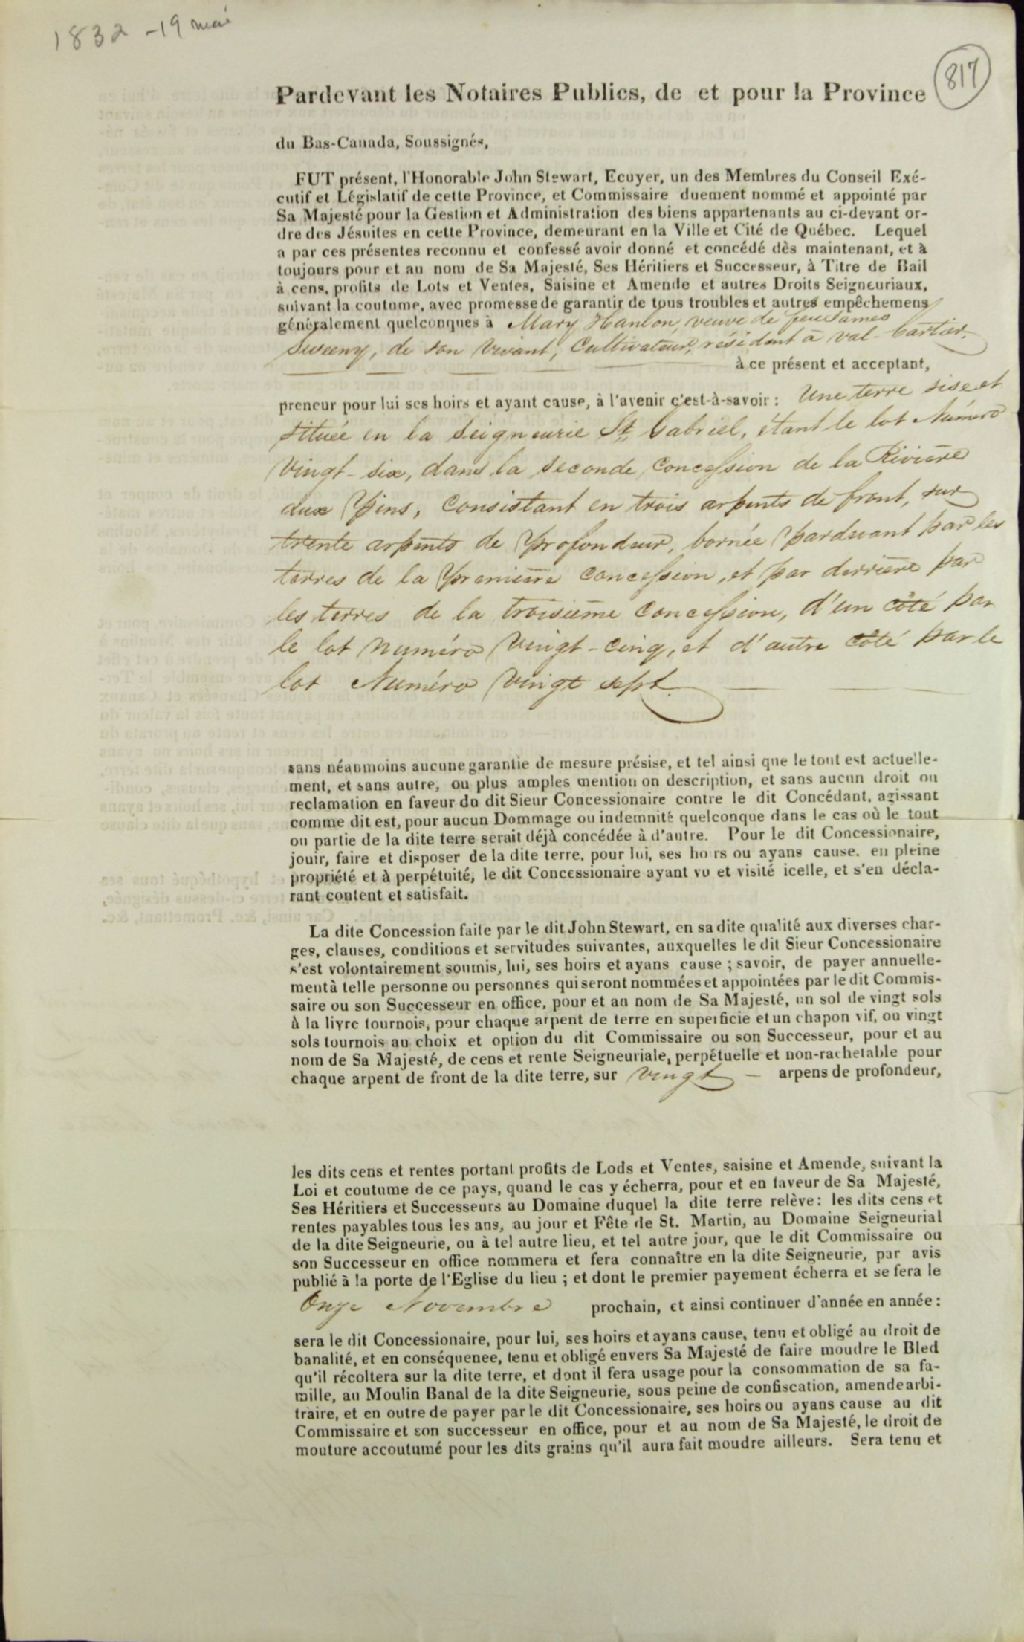 1832 - 19 mai
817
Pardevant les Notaires Publics, de et pour la Province
du Bas-Canada, Soussignés,
FUT présent, l'Honorable John Stewart, Ecuyer, un des Membres du Conseil Exé-
cutif et Législatif de cette Province, et Commissaire duement nommé et appointé par
Sa Majesté pour la Gestion et Administration des biens appartenants au ci-devant or-
dre des Jésuites en cette Province, demeurant en la Ville et Cité de Québec. Lequel
a par ces présentes reconnu et confessé avoir donné et concédé dès maintenant, et à
toujours pour et au nom de Sa Majesté, Ses Héritiers et Successeur, à Titre de Bail
à cens, profits de Lots et Ventes, Saisine et Amende et autres Droits Seigneuriaux,
suivant la coutume, avec promesse de garantir de tous troubles et autres empêchemens
généralement quelconques à Mary Hanlon, veuve de feu James
Sweeny, de son vivant, Cultivateur, résidant à val-Cartier,
à ce présent et acceptant,
preneur pour lui ses hoirs et ayant cause, à l'avenir c'est-à-savoir : Une terre sise et
située en la Seigneurie St. Gabriel, étant le lot Numéro
Vingt-six, dans la seconde Concession de la Rivière
aux Pins, Consistant en trois arpents de front, sur
trente arpents de Profondeur, bornée pardevant par les
terres de la Première Concession, et par derrière par
les terres de la troisième Concession, d'un côté par
le lot numéro Vingt-cinq, et d'autre côté par le
lot Numéro Vingt sept.
sans néanmoins aucune garantie de mesure présise, et tel ainsi que le tout est actuelle-
ment, et sans autre, ou plus amples mention on description, et sans aucun droit ou
reclamation en faveur du dit Sieur Concessionaire contre le dit Concédant, agissant
comme dit est, pour aucun Dommage ou indemnité quelconque dans le cas où le tout
ou partie de la dite terre serait déjà concédée à d'autre. Pour le dit Concessionaire,
jouir, faire et disposer de la dite terre, pour lui, ses hoirs ou ayans cause, en pleine
propriété et à perpétuité, le dit Concessionaire ayant vu et visité icelle, et s'en décla-
rant content et satisfait.
La dite Concession faite par le dit John Stewart, en sa dite qualité aux diverses char-
ges, clauses, conditions et servitudes suivantes, auxquelles le dit Sieur Concessionaire
s'est volontairement soumis, lui, ses hoirs et ayans cause ; savoir, de payer annuelle-
ment à telle personne ou personnes qui seront nommées et appointées par le dit Commis-
saire ou son Successeur en office, pour et au nom de Sa Majesté, un sol de vingt sols
à la livre tournois, pour chaque arpent de terre en superficie et un chapon vif, ou vingt
sols tournois au choix et option du dit Commissaire ou son Successeur, pour et au
nom de Sa Majesté, de cens et rente Seigneuriale, perpétuelle et non-rachetable pour
chaque arpent de front de la dite terre, sur vingt — arpens de profondeur,
les dits cens et rentes portant profits de Lods et Ventes, saisine et Amende, suivant la
Loi et coutume de ce pays, quand le cas y écherra, pour et en faveur de Sa Majesté,
Ses Héritiers et Successeurs au Domaine duquel la dite terre relève : les dits cens et
rentes payables tous les ans, au jour et Fête de St. Martin, au Domaine Seigneurial
de la dite Seigneurie, ou à tel autre lieu, et tel antre jour, que le dit Commissaire ou
son Successeur en office nommera et fera connaître en la dite Seigneurie, par avis
publié à la porte de l'Eglise du lieu ; et dont le premier payement écherra et se fera le
Onze Novembre prochain, et ainsi continuer d'année en année :
sera le dit Concessionaire, pour lui, ses hoirs et ayans cause, tenu et obligé au droit de
banalité, et en conséquenee, tenu et obligé envers Sa Majesté de faire moudre le Bled
qu'il récoltera sur la dite terre, et dont il fera usage pour la consommation de sa fa-
mille, au Moulin Banal de la dite Seigneurie, sous peine de confiscation, amende arbi-
traire, et en outre de payer par le dit Concessionaire, ses hoirs ou ayans cause au dit
Commissaire et son successeur en office, pour et au nom de Sa Majesté, le droit de
mouture accoutumé pour les dits grains qu'il aura fait moudre ailleurs. Sera tenu et